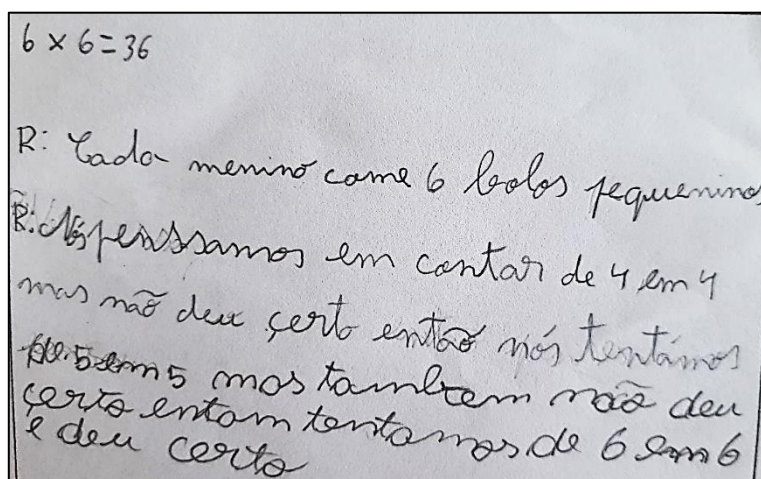 6 × 6 = 36
R: Cada menino come 6 bolos pequeninos
R: Nós penssamos em contar de 4 em 4
mas não deu çerto então nós tentámos
de 5 em 5 mas tambem não deu
çerto entam tentamos de 6 em 6
e deu certo